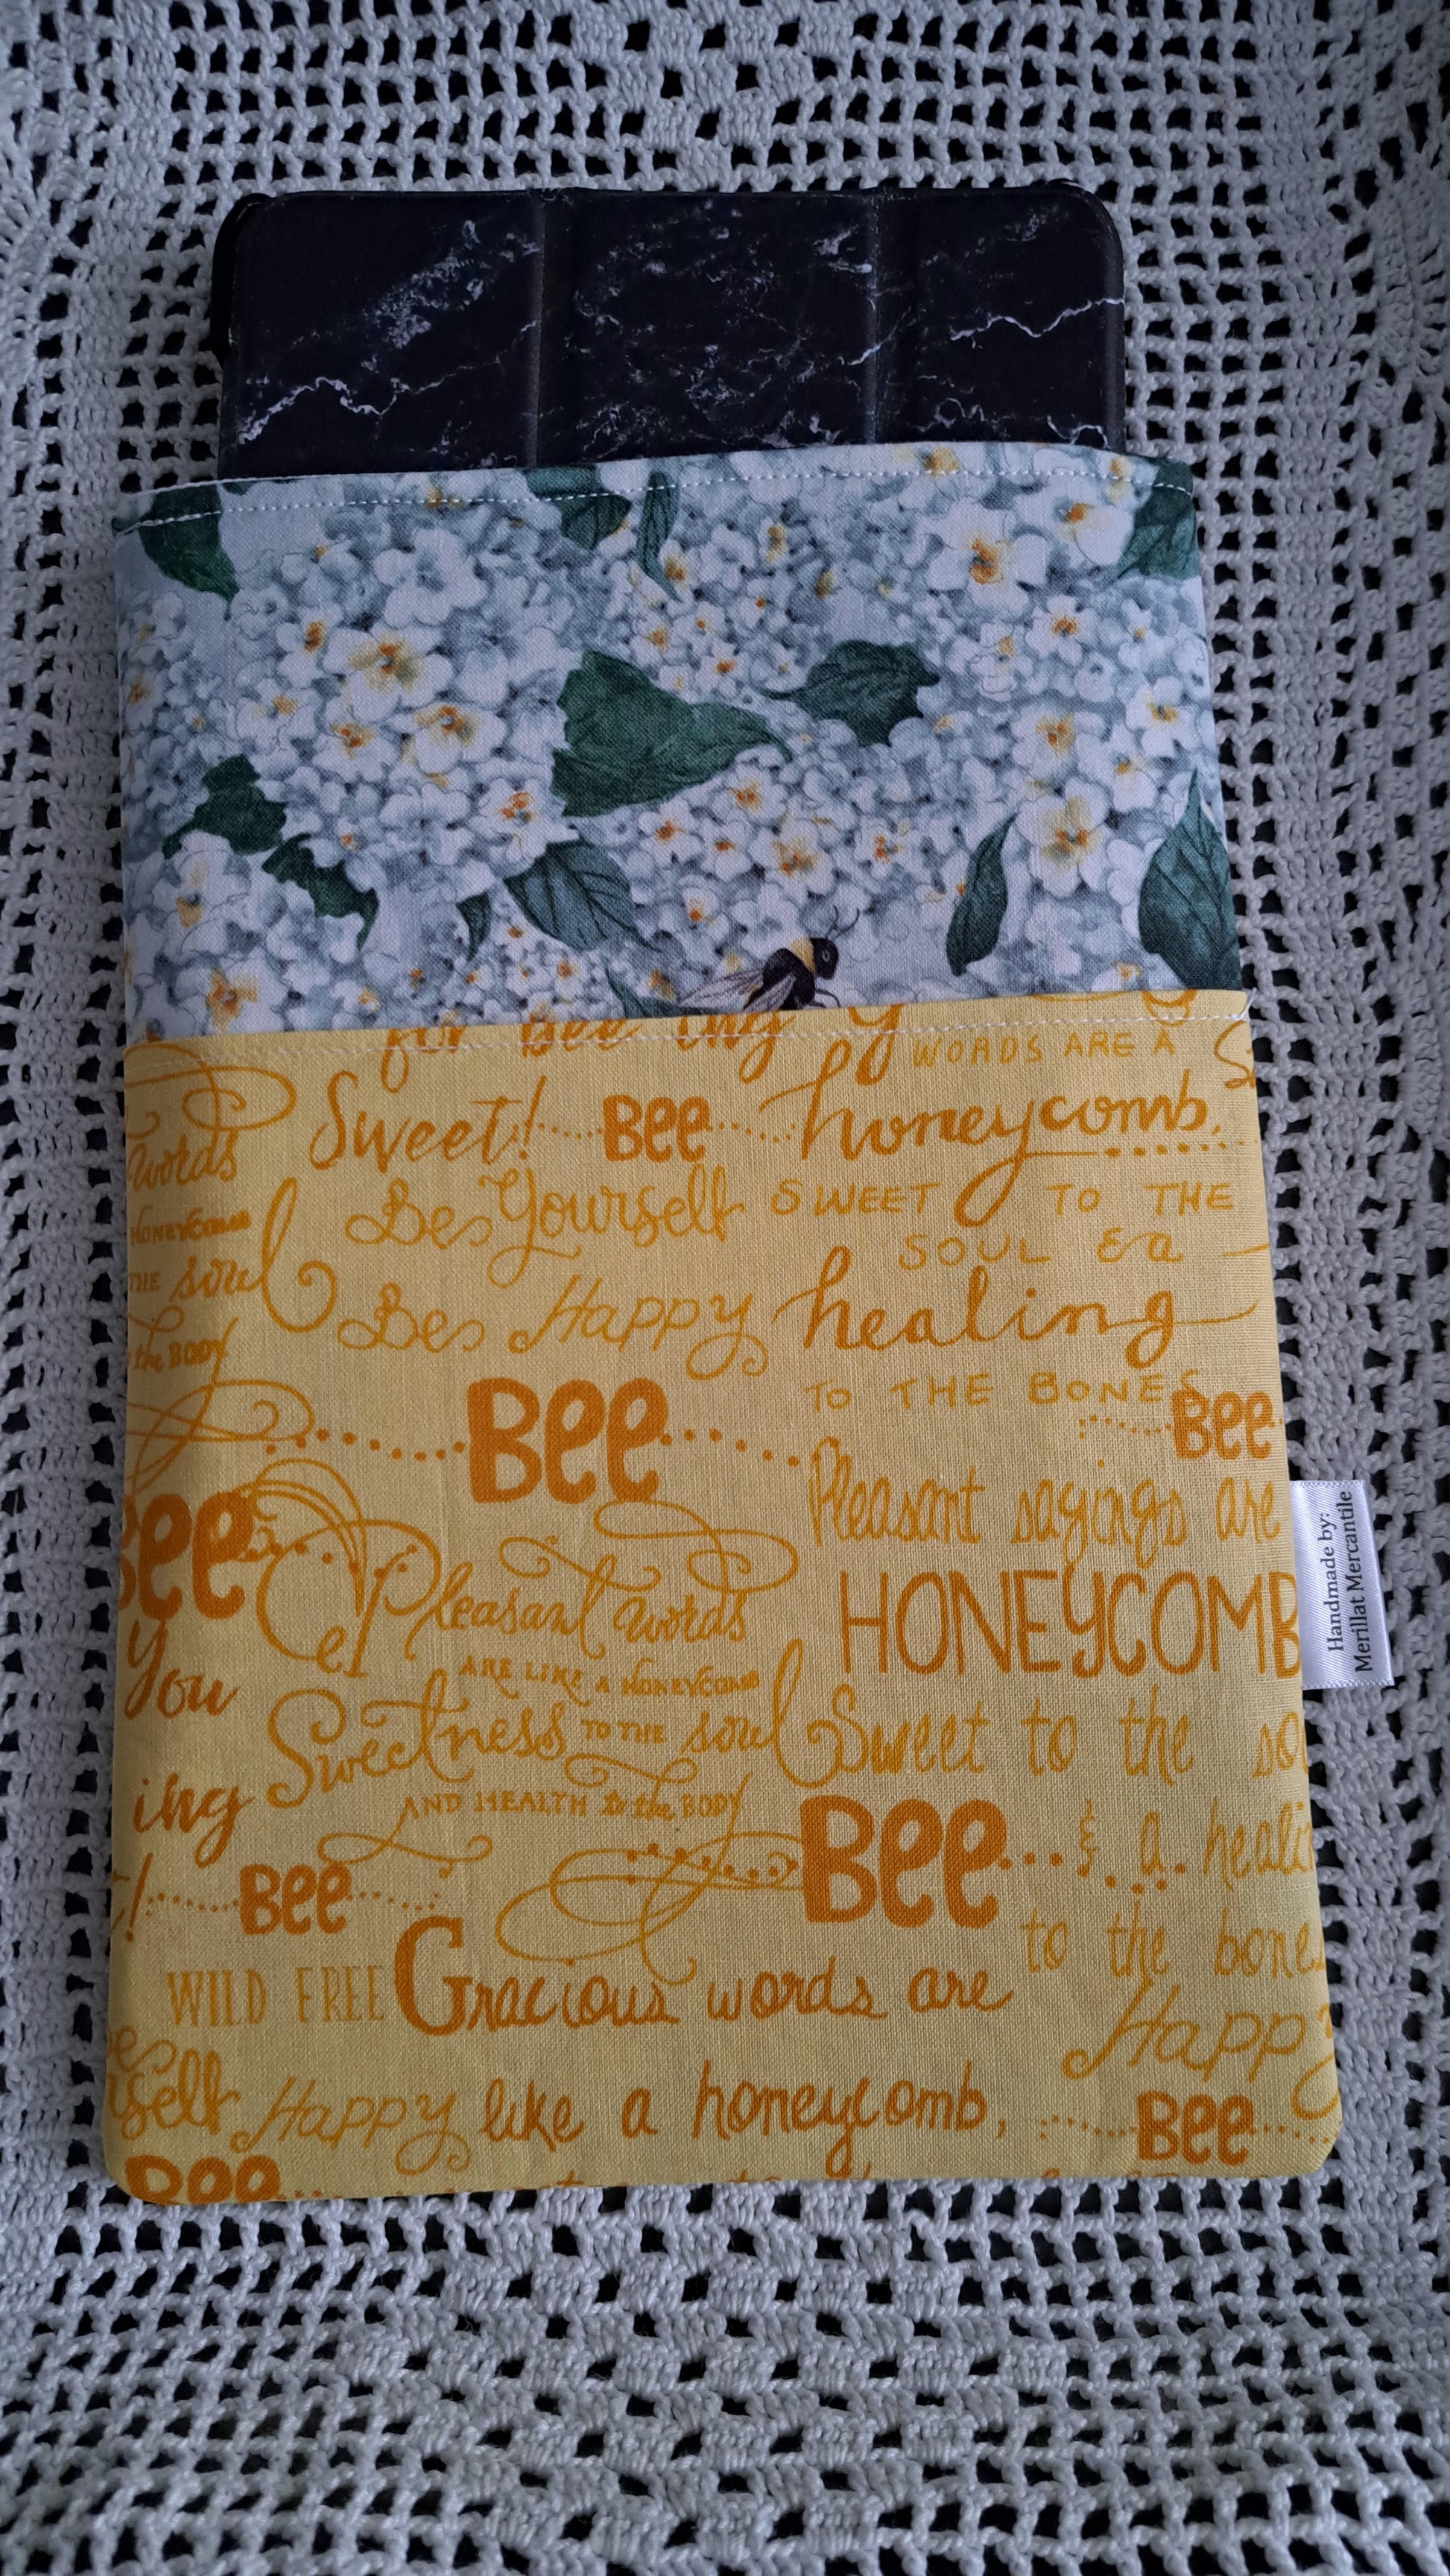 for Bee ing y
WORDS ARE A
Sweet! Bee honeycomb,
words
Be Yourself SWEET TO THE
HONEYCOMB
SOUL & a
THE soul
Be Happy healing
to the BODY
TO THE BONES
Bee Bee
Pleasant sayings are
Bee
Pleasant words
HONEYCOMB
ARE LIKE A HONEYCOMB
you
Sweetness TO THE soul Sweet to the
ing
AND HEALTH to the BODY
Bee & a
! Bee
to the
WILD FREE Gracious words are
Happy
self Happy like a honeycomb,
Bee
Bee
Handmade by:
Merillat Mercantile